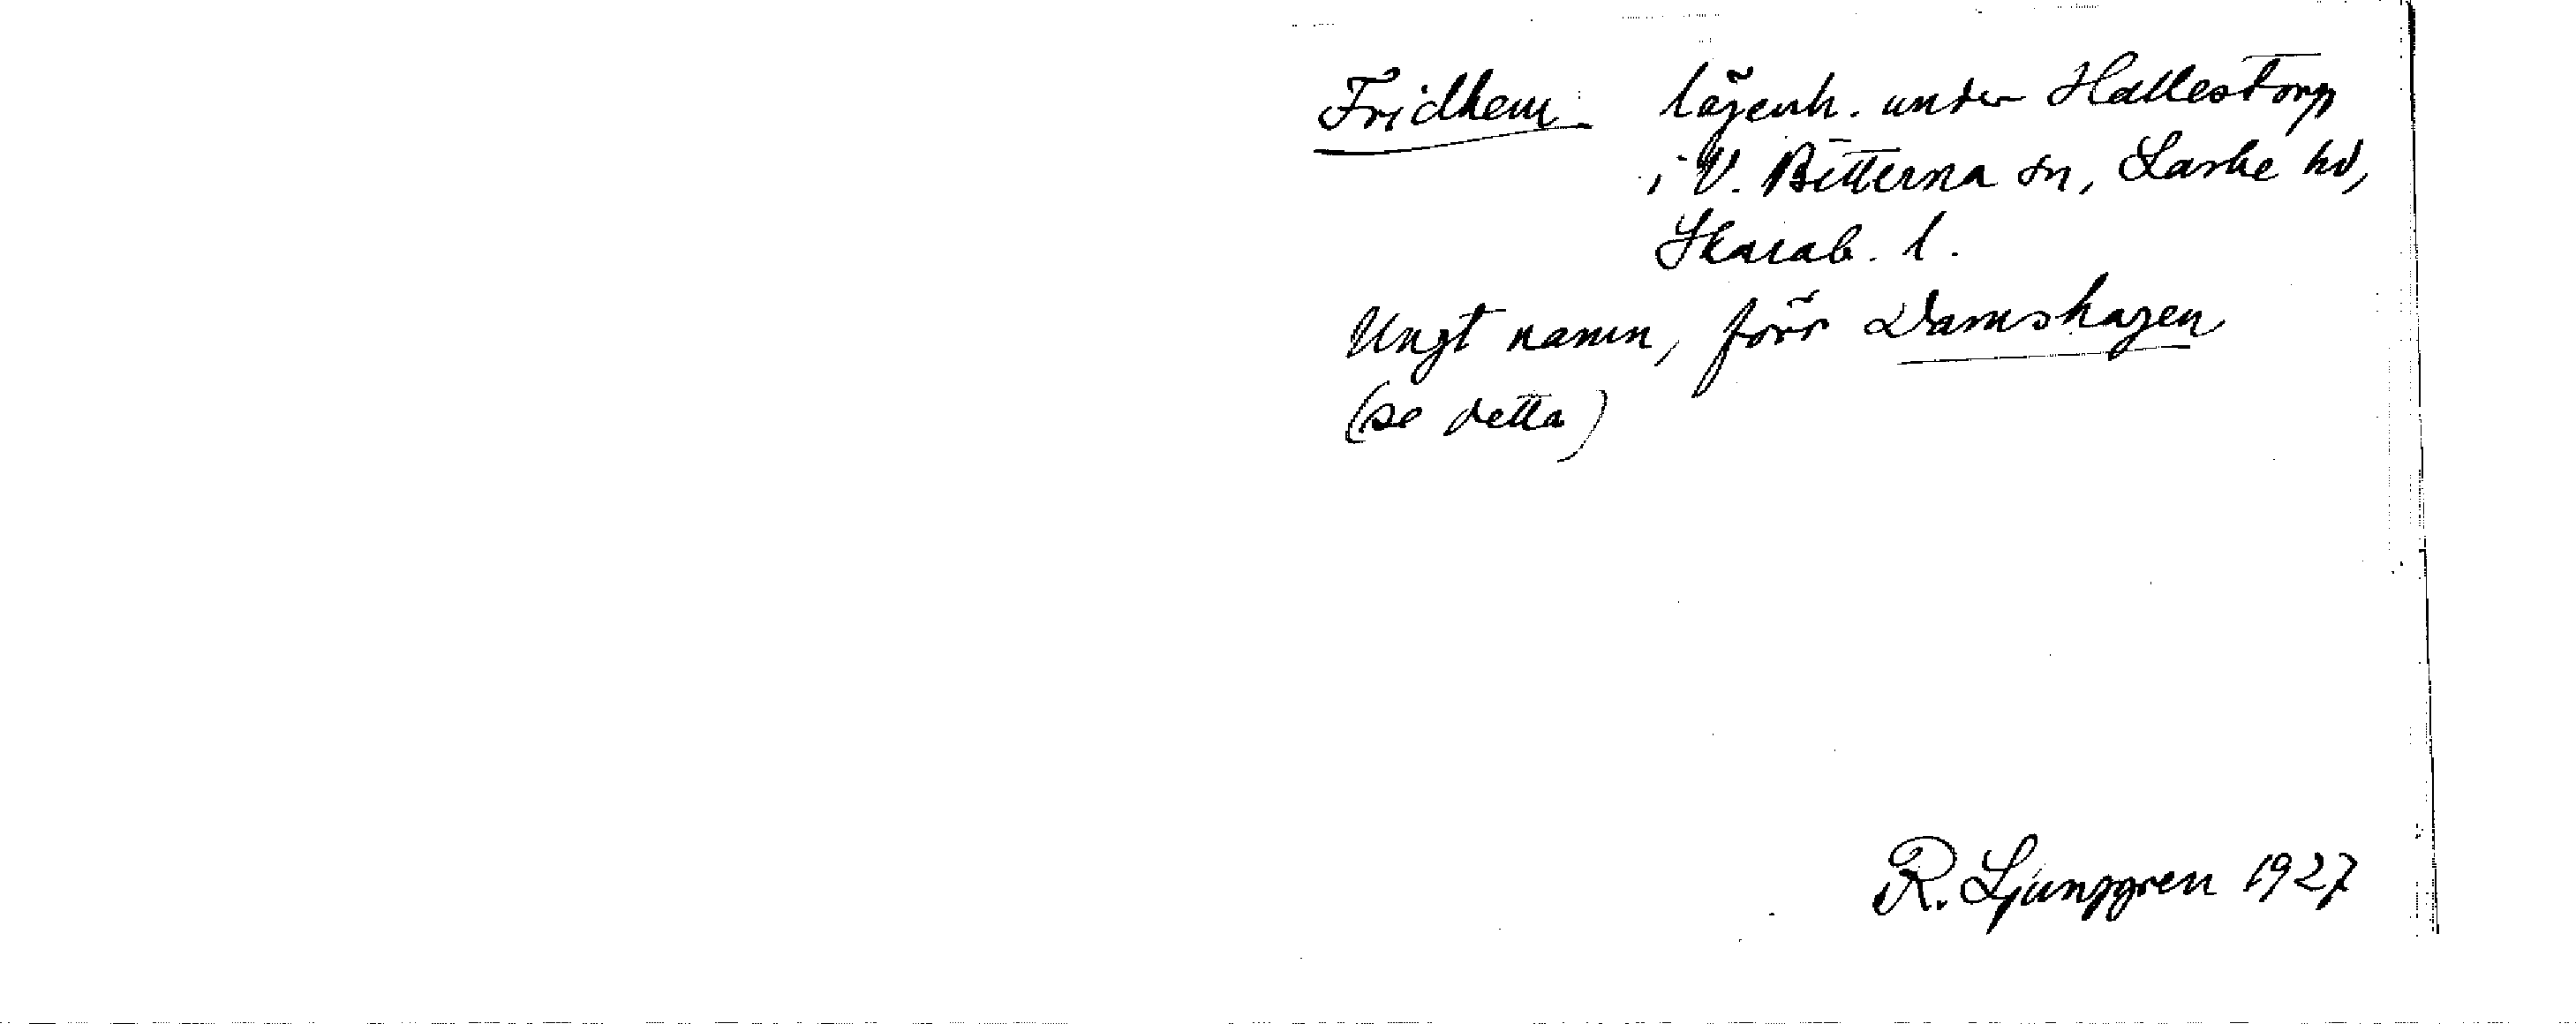 Fridhem lägenh. under Hallestorp
i V. Bitterna sn, Laske hd,
Skarab. l.
Ungt namn, förr Damshagen
(se detta)
R. Ljunggren 1927